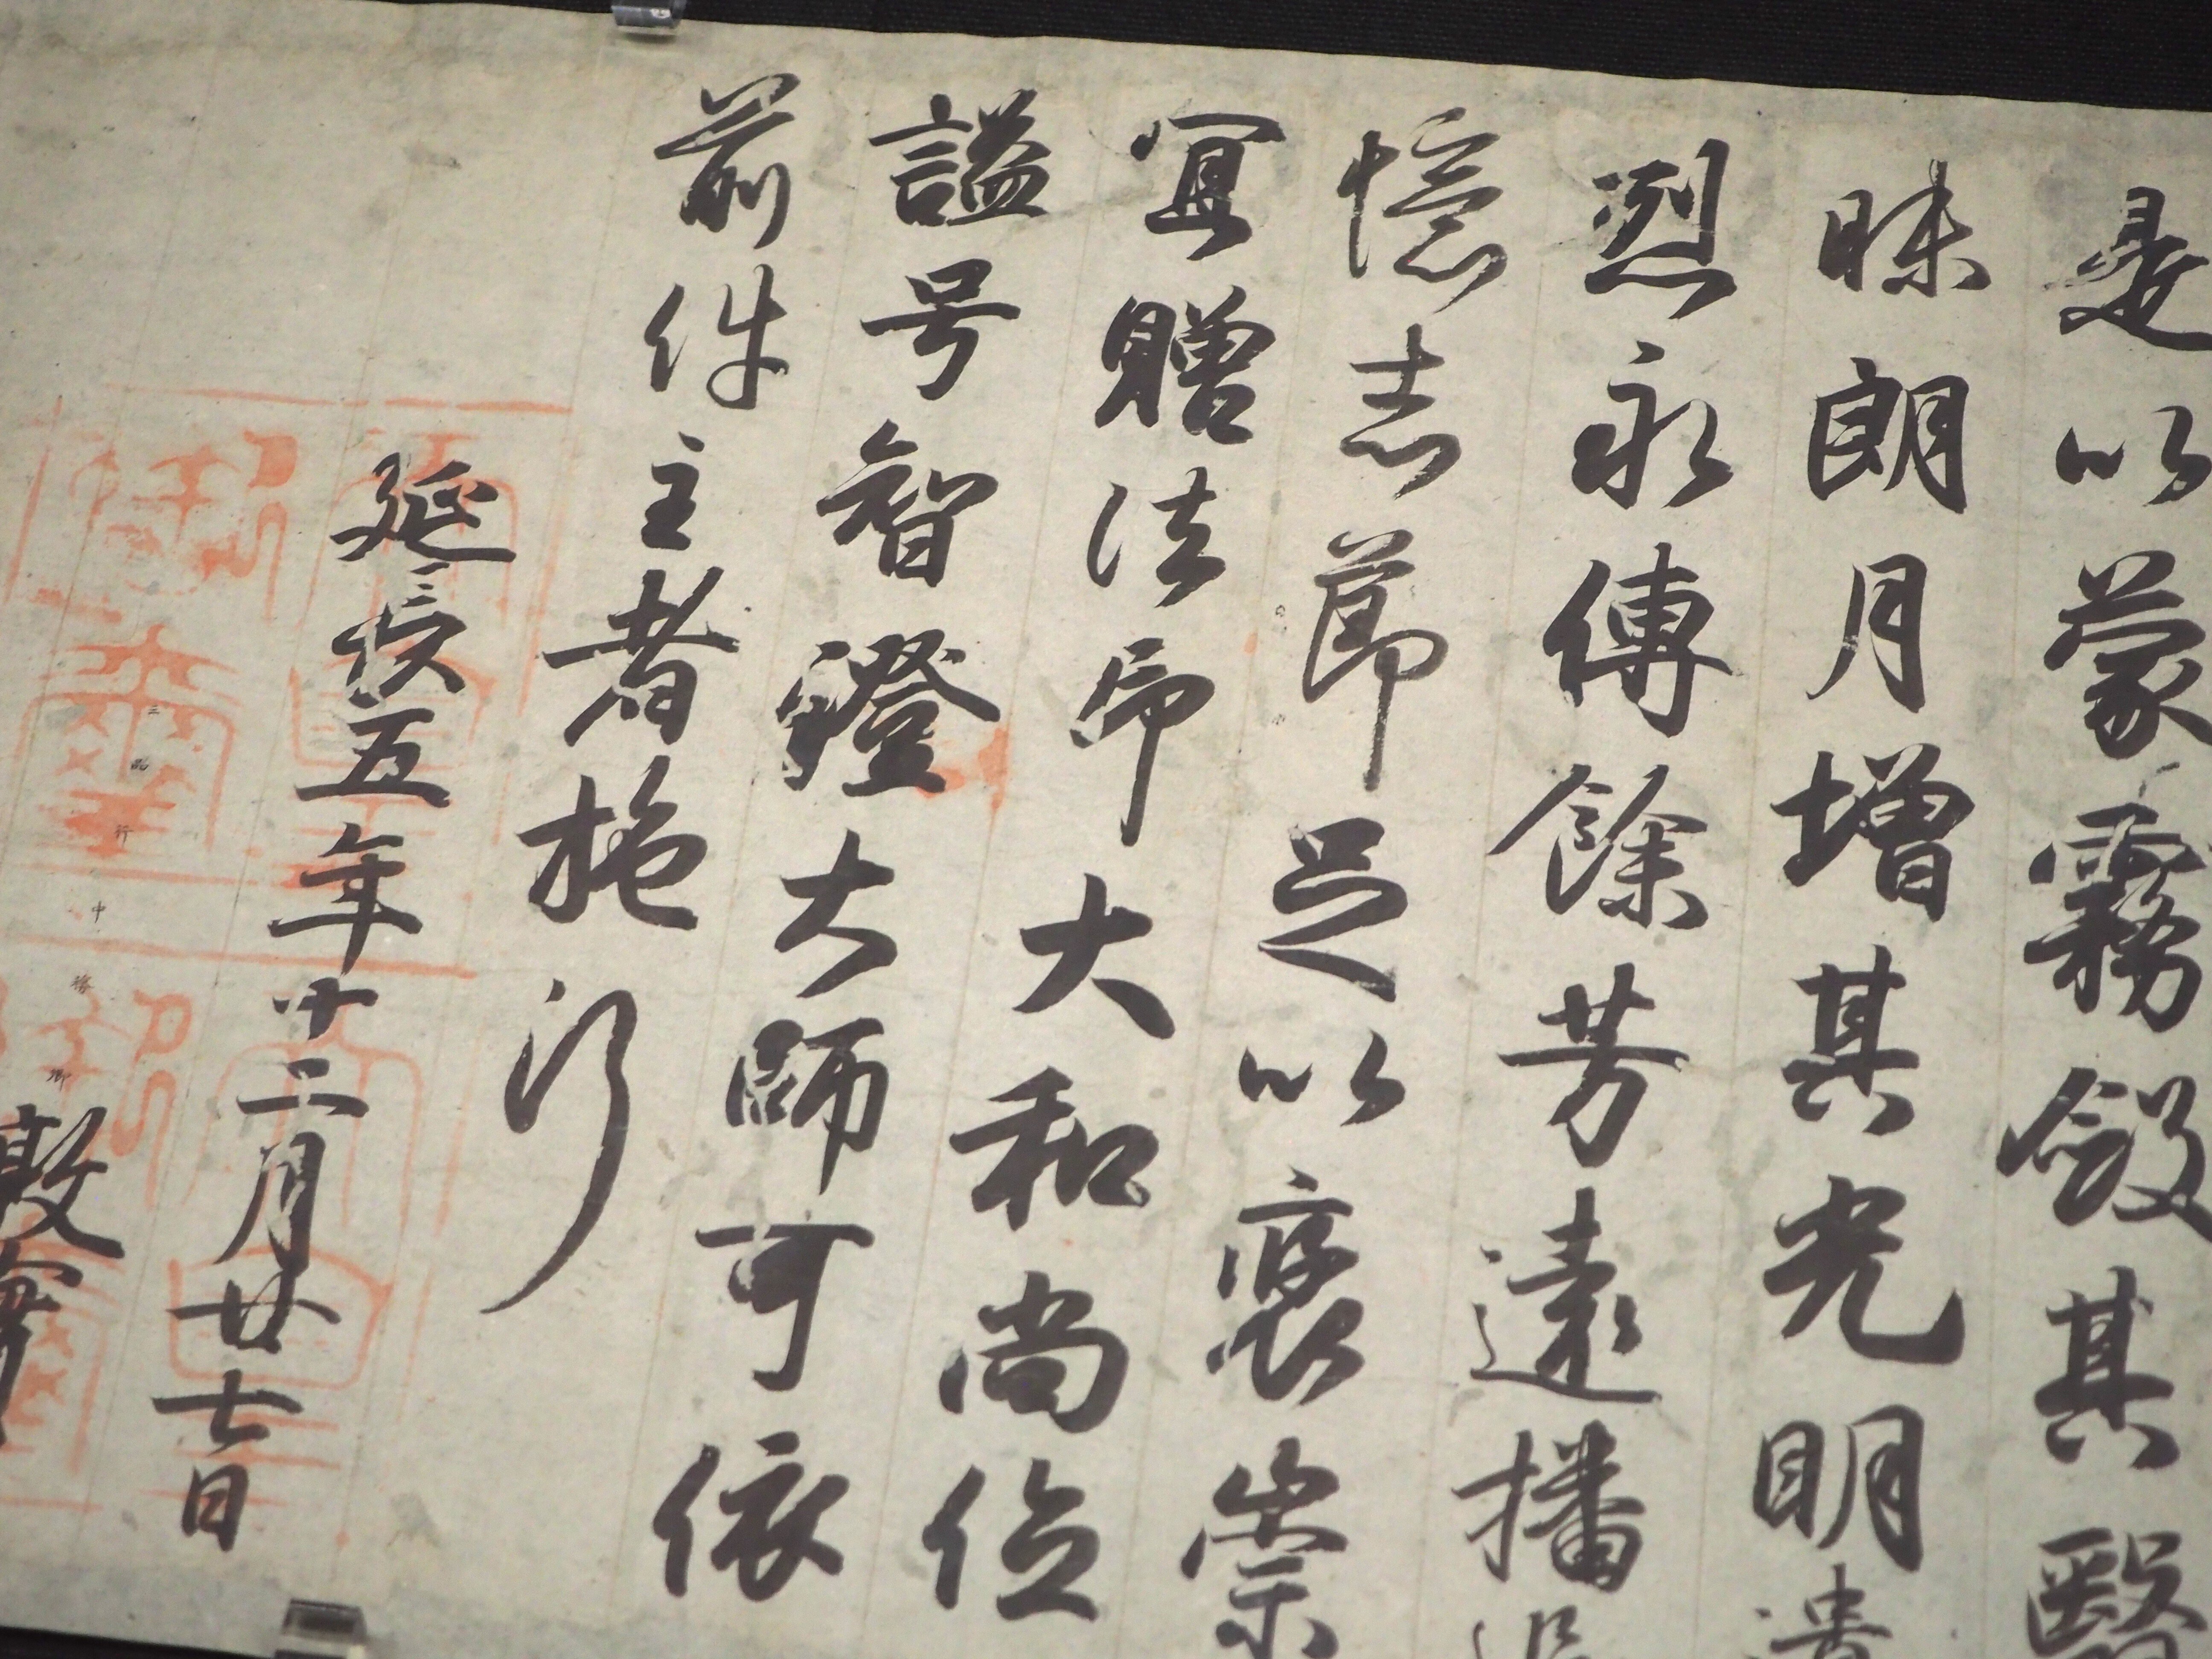 是以蒙霧斂其翳
昧朗月増其光明遺
烈永傳餘芳遠播追
憶志莭足以褒崇
冝贈法印大和尚位
謚号智證大師可依
前件主者施行
延長五年十二月廿七日
三品行中務卿
敦實